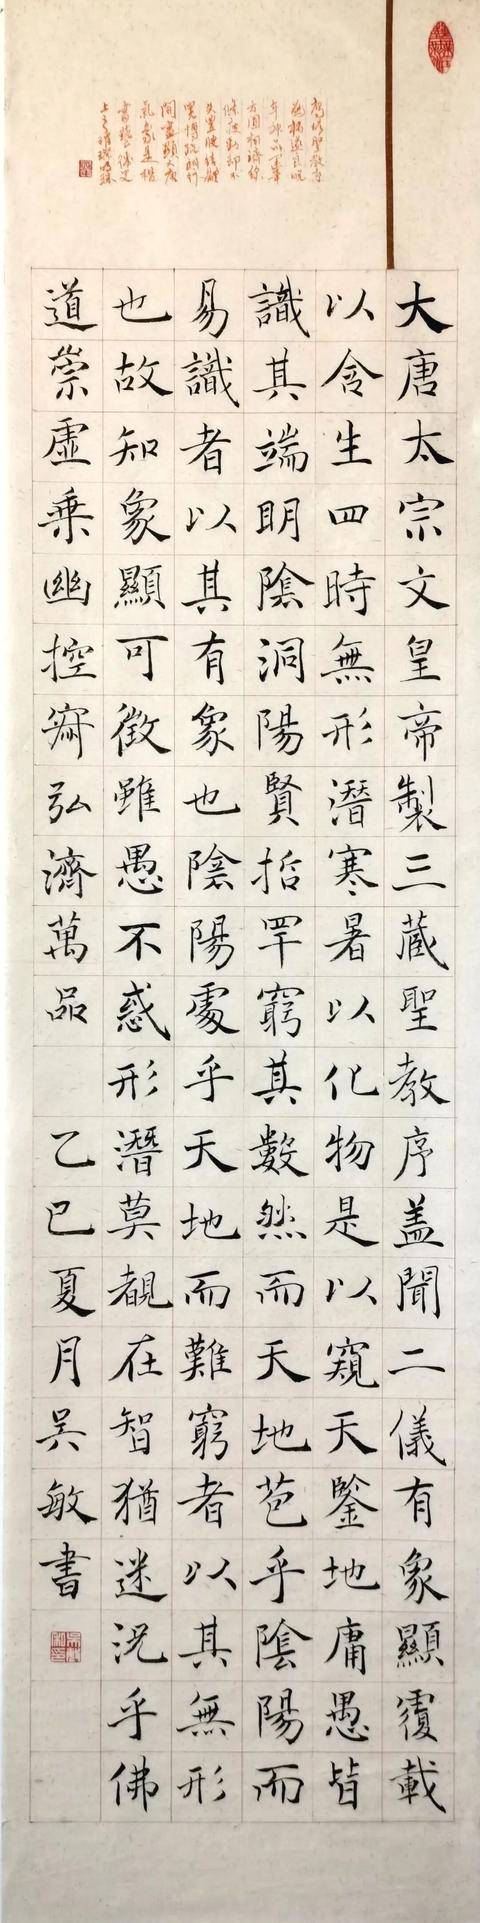 大唐太宗文皇帝製三藏聖教序蓋聞二儀有象顯覆載
以含生四時無形潛寒暑以化物是以窺天鑒地庸愚皆
識其端明陰洞陽賢哲罕窮其數然而天地苞乎陰陽而
易識者以其有象也陰陽處乎天地而難窮者以其無形
也故知象顯可徵雖愚不惑形潛莫覩在智猶迷況乎佛
道崇虛乘幽控寂弘濟萬品 乙巳夏月吴敏書